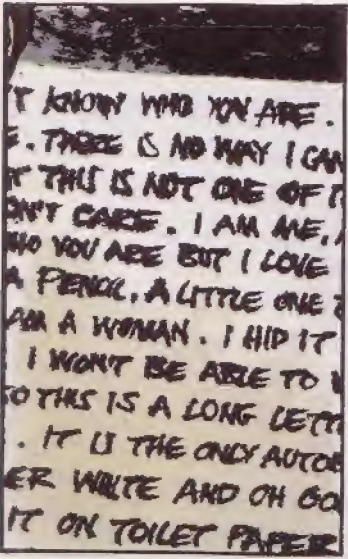 'T KNOW WHO YOU ARE.
E. THERE IS NO WAY I CAN
THIS IS NOT ONE OF
ON'T CARE. I AM ME,
HO YOU ARE BUT I LOVE
A PENCIL. A LITTLE ONE
AM A WOMAN. I HID IT
I WON'T BE ABLE TO
O THIS IS A LONG LETT
. IT IS THE ONLY AUTOB
ER WRITE AND OH GO
IT ON TOILET PAPER